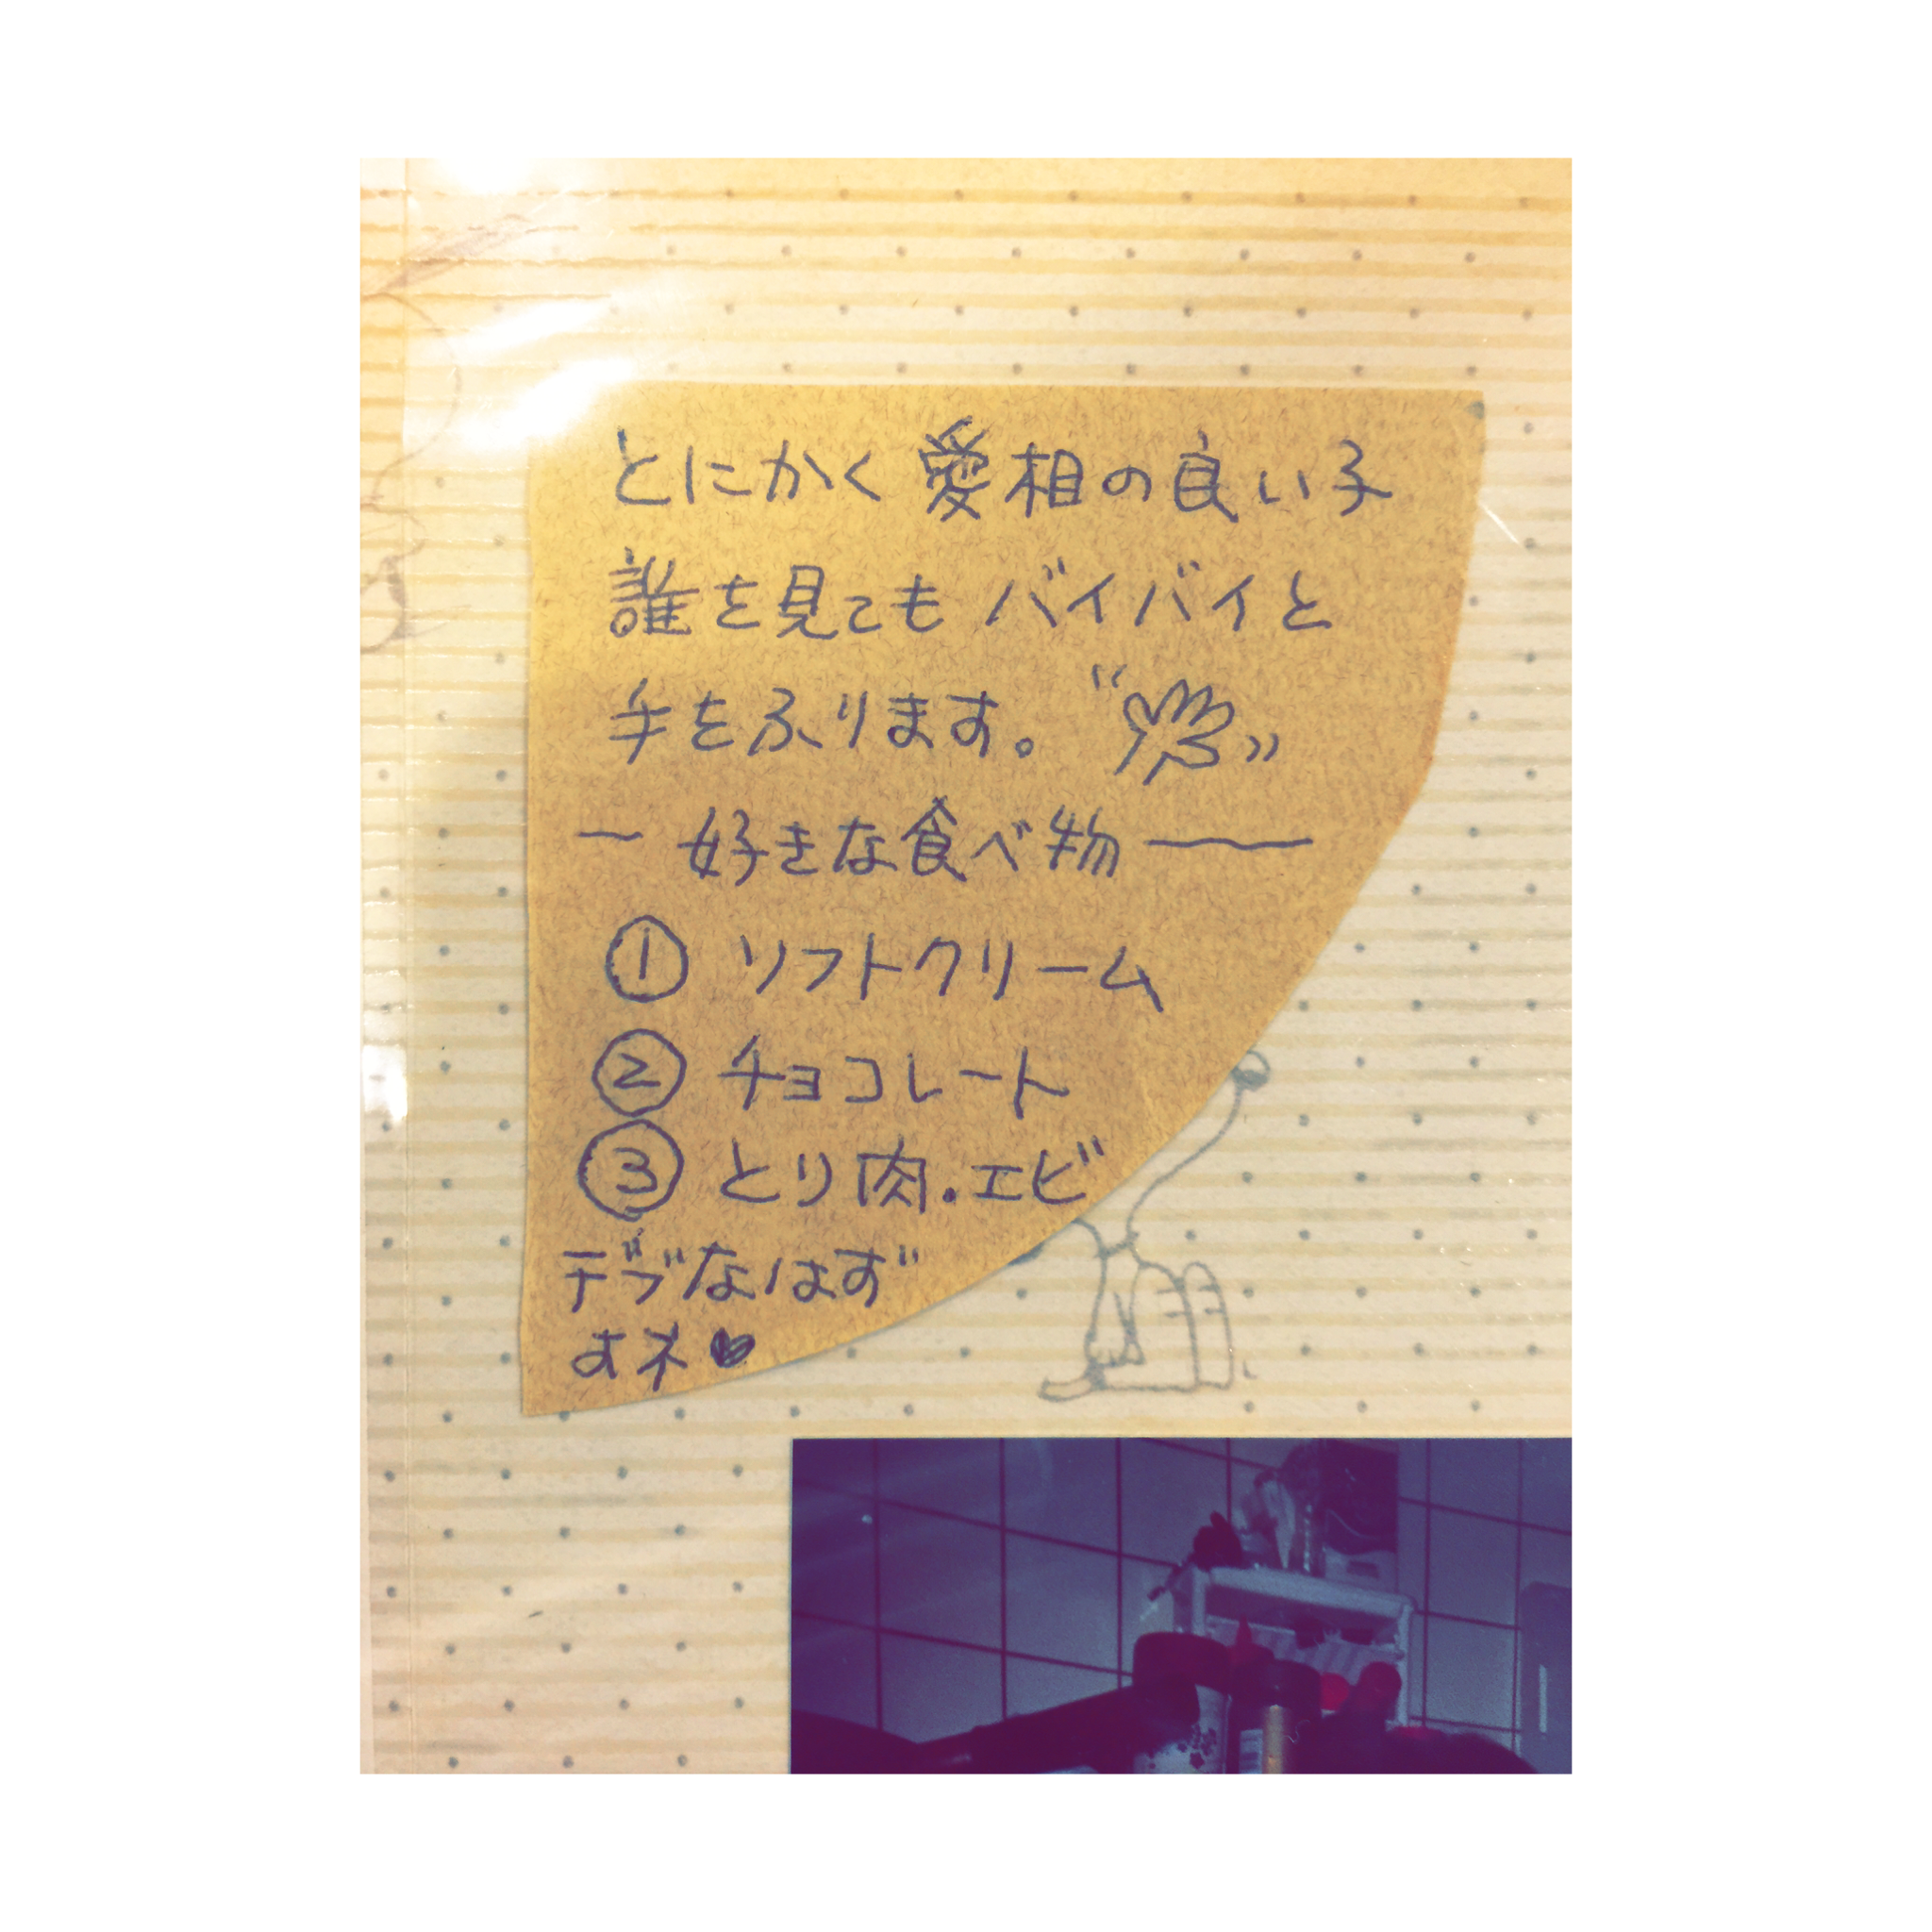 とにかく愛相の良い子
誰を見てもバイバイと
手をふります。
〜 好きな食べ物 〜
① ソフトクリーム
② チョコレート
③ とり肉.エビ
デブなはず
すネ♥